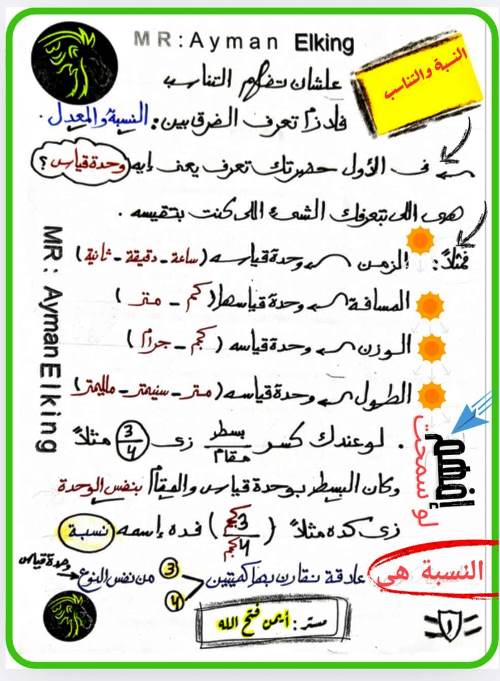 MR: Ayman Elking
النسبة والتناسب
علشان تفهم التناسب
فلازم تعرف الفرق بين: النسبة والمعدل.
فى الأول حضرتك تعرف يعنى إيه وحدة قياس؟
هى اللى بتعرفك الشئ اللى كنت بتقيسه.
فمثلاً: الزمن وحدة قياسه (ساعة - دقيقة - ثانية)
المسافة وحدة قياسها (كم - متر)
الوزن وحدة قياسه (كجم - جرام)
الطول وحدة قياسه (متر - سنيمتر - ملليمتر)
MR: Ayman Elking
. لو عندك كسر بسط/مقام زى 3/4 مثلاً
إفهم لو سمحت
وكان البسط بوحدة قياس والمقام بنفس الوحدة
زى كده مثلاً (3 كجم / 4 كجم) فده إسمه نسبة
النسبة هى علاقة نقارن بها كميتين 3 4 من نفس النوع وحدة قياس
مستر: أيمن فتح الله
١